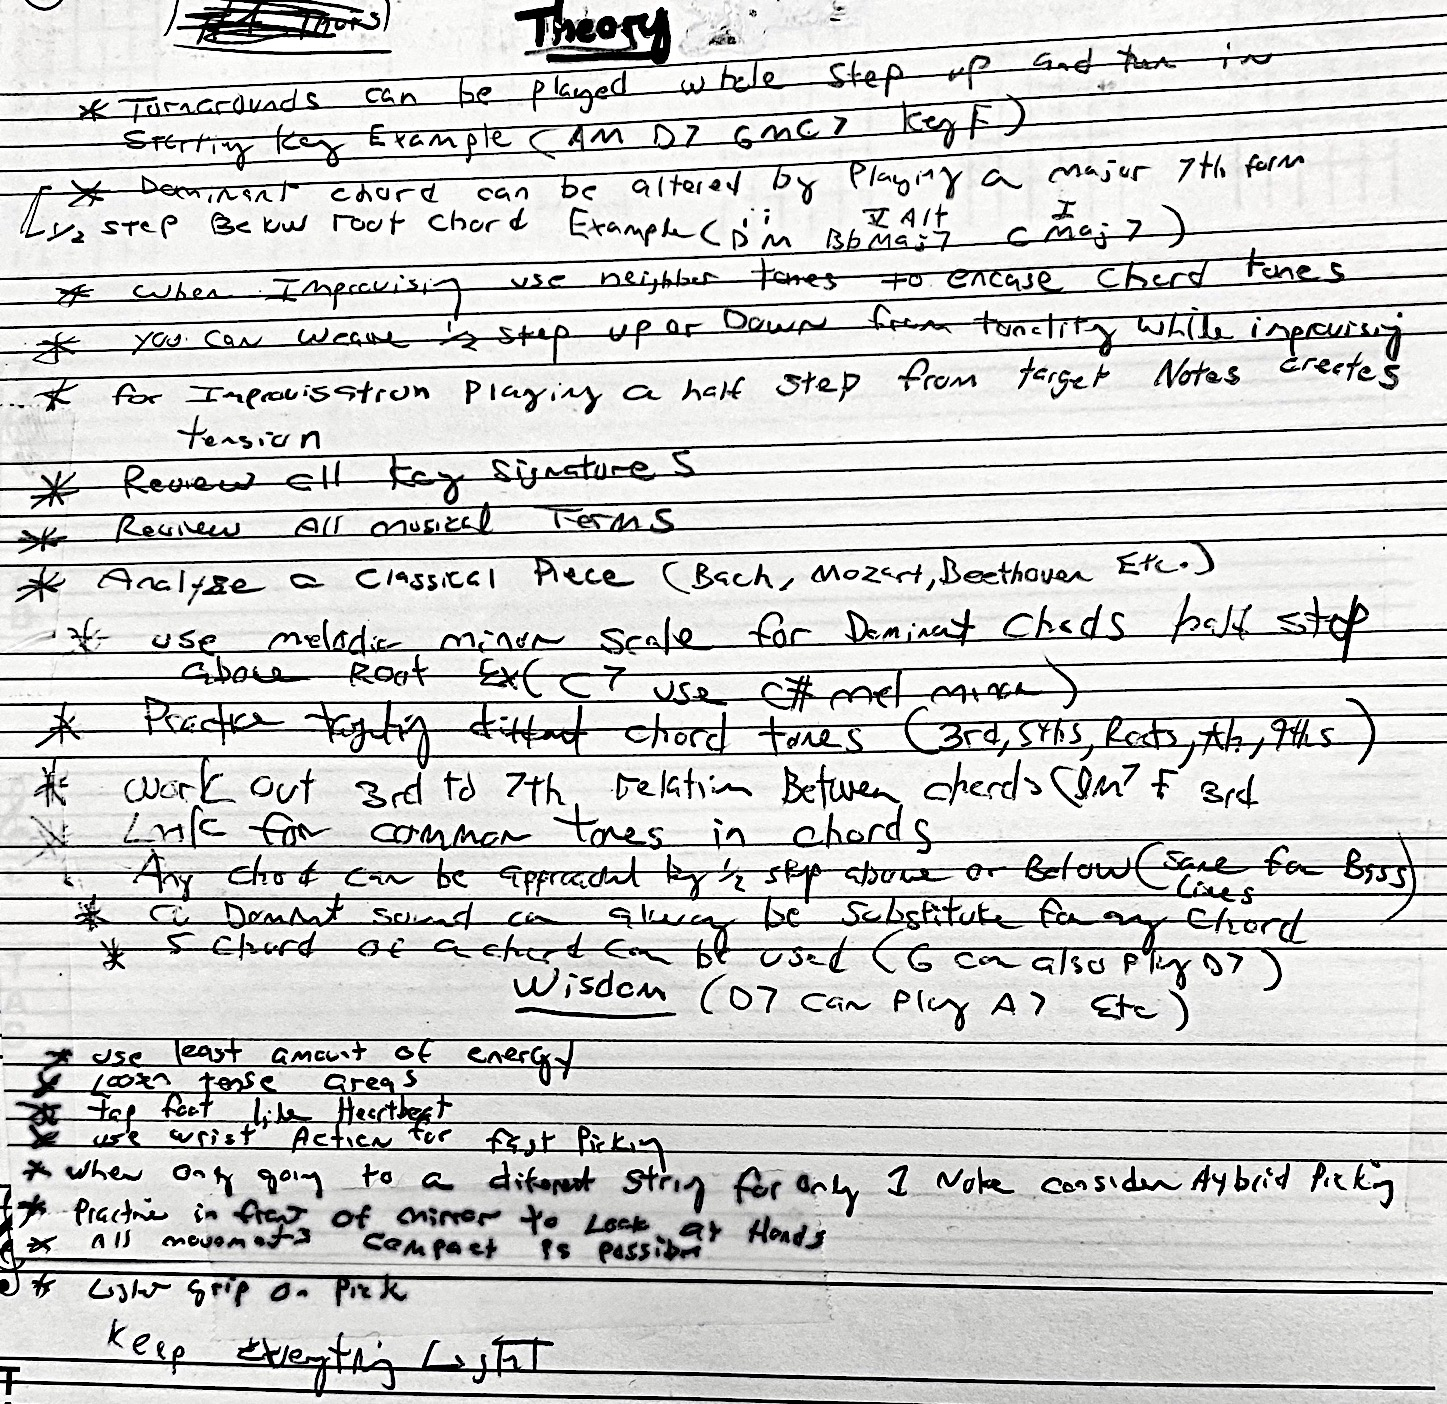 Theory
* Turnarounds can be played whole step up and turn in
Starting key Example (AM D7 GMC7 key F)
* Dominant chord can be altered by Playing a major 7th form
1/2 step Below root chord Example (
ii
DM
V Alt
BbMaj7
I
CMaj7)
* when Improvising use neighbor tones to encase chord tones
* you can weave 1/2 step up or Down from tonality while improvising
* for Improvisation Playing a half step from target Notes creates
tension
* Review all key signatures
* Review All musical Terms
* Analyze a Classical Piece (Bach, Mozart, Beethoven Etc.)
* use melodic minor scale for Dominant Chords half step
above Root Ex( C7 use C# mel minor)
* Practice targeting different chord tones (3rd, 5ths, Roots, 7th, 9ths)
* work out 3rd to 7th relation Between chords (DM7 F 3rd
* Look for common tones in chords
Any chord can be approached by 1/2 step above or Below (same for Bass
lines)
* a Dominant sound can always be Substitute for any Chord
* 5 chord of a chord can be used (G can also play D7)
Wisdom (D7 can play A7 Etc)
* use least amount of energy
* Loosen tense areas
* tap foot like Heartbeat
* use wrist Action for fast Picking
* when only going to a diferent string for only 1 Note consider Hybrid Picking
* Practice in front of mirror to Look at Hands
* All movements compact is possible
* Light grip on Pick
Keep Everything Light